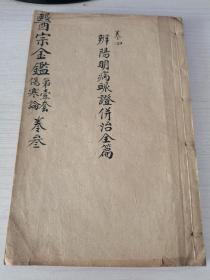 卷四
辨陽明病脈證併治全篇
醫宗金鑑
第壹套
傷寒論
卷叁